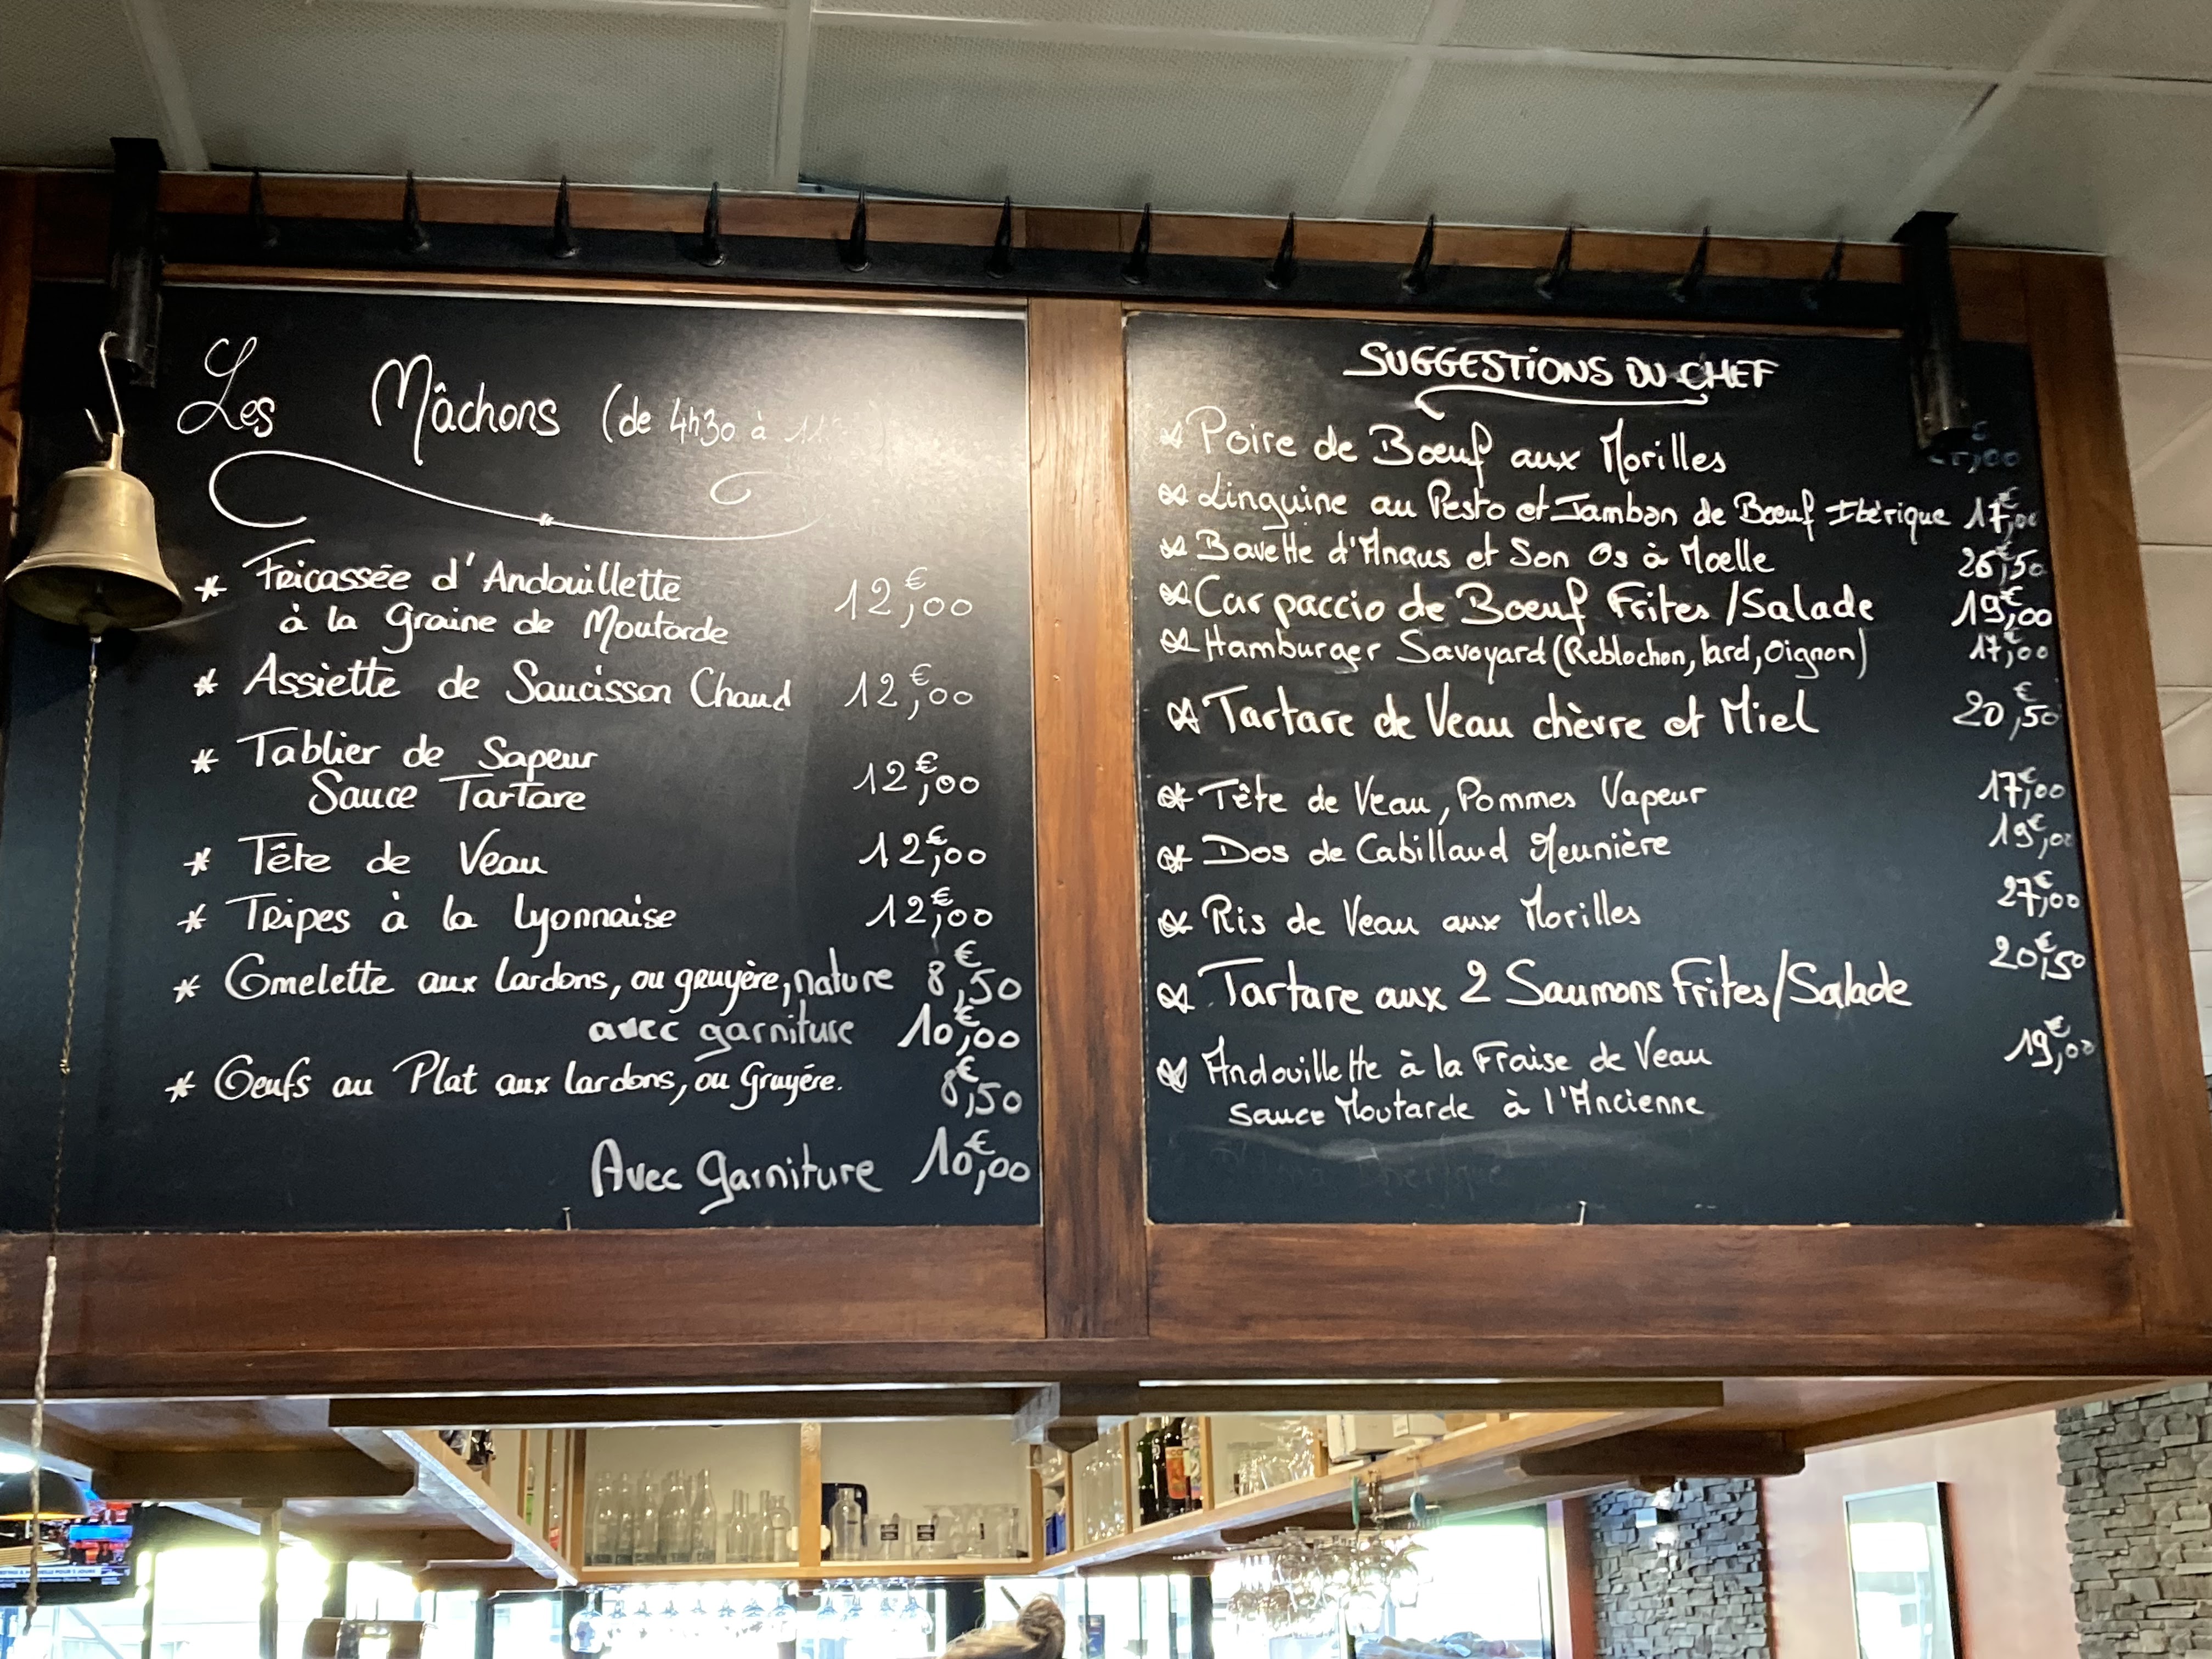 Les Mâchons (de 4h30 à 11
* Fricassée d'Andouillette
à la Graine de Moutarde 12€,00
* Assiette de Saucisson Chaud 12€,00
* Tablier de Sapeur
Sauce Tartare 12€,00
* Tête de Veau 12€,00
* Tripes à la Lyonnaise 12€,00
* Omelette aux lardons, ou gruyère, nature 8€,50
avec garniture 10€,00
* Oeufs au Plat aux lardons, ou Gruyére. 8€,50
Avec Garniture 10€,00
SUGGESTIONS DU CHEF
Poire de Bœuf aux Morilles
Linguine au Pesto et Jambon de Bœuf Ibérique 17€,00
Bavette d'Angus et Son Os à Moelle 26€,50
Carpaccio de Bœuf Frites/Salade 19€,00
Hamburger Savoyard (Reblochon, lard, Oignon) 17€,00
Tartare de Veau chèvre et Miel 20€,50
Tête de Veau, Pommes Vapeur 17€,00
Dos de Cabillaud Meunière 19€,00
Ris de Veau aux Morilles 27€,00
Tartare aux 2 Saumons Frites/Salade 20€,50
Andouillette à la Fraise de Veau 19€,00
Sauce Moutarde à l'Ancienne